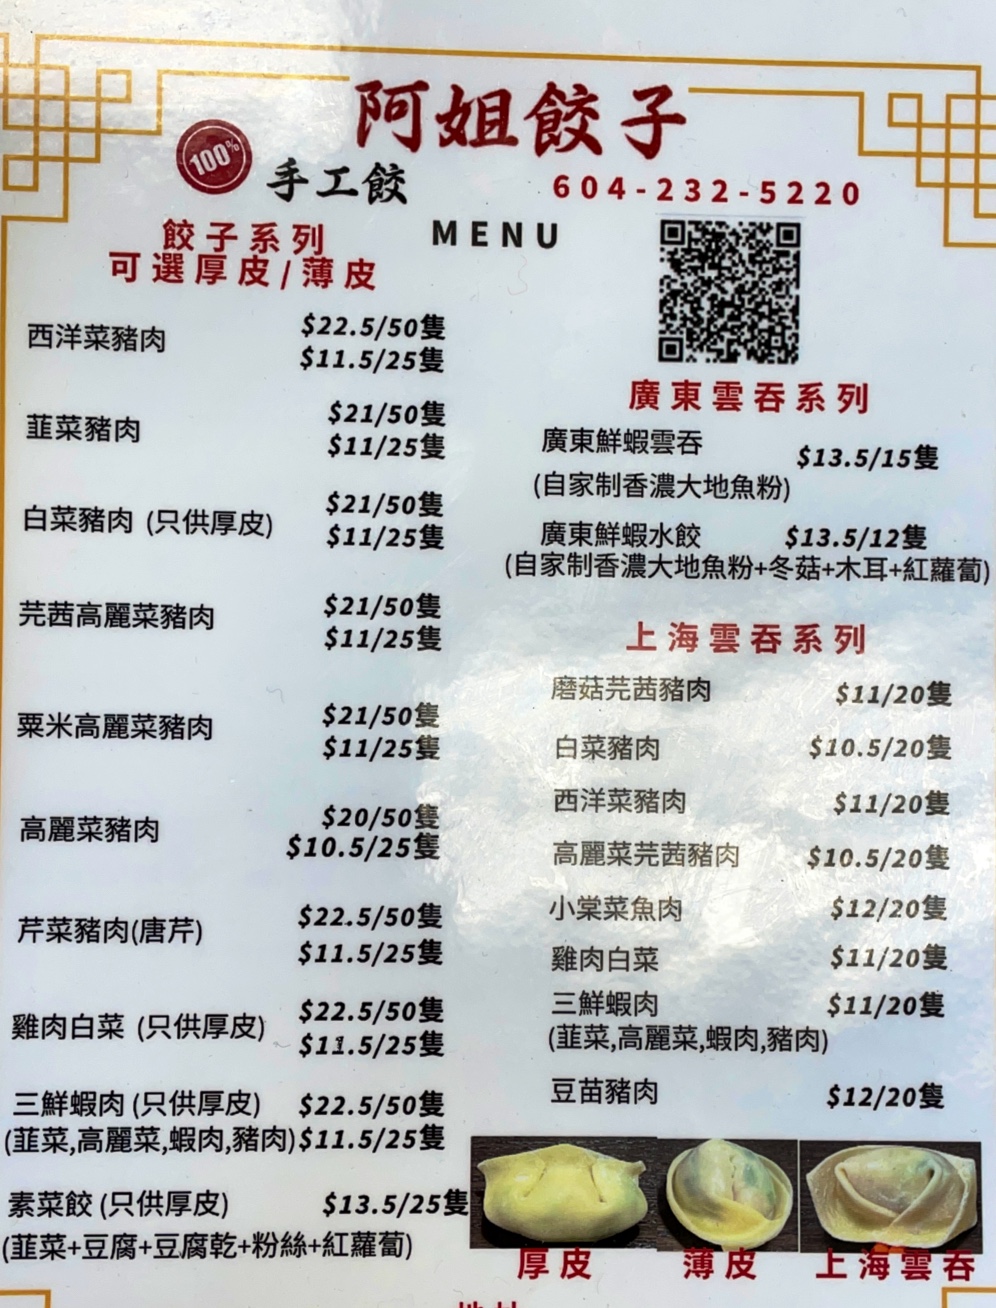 阿姐餃子
100%
手工餃
604-232-5220
MENU
餃子系列
可選厚皮/薄皮
西洋菜豬肉 $22.5/50隻
$11.5/25隻
韮菜豬肉 $21/50隻
$11/25隻
白菜豬肉 (只供厚皮) $21/50隻
$11/25隻
芫茜高麗菜豬肉 $21/50隻
$11/25隻
粟米高麗菜豬肉 $21/50隻
$11/25隻
高麗菜豬肉 $20/50隻
$10.5/25隻
芹菜豬肉(唐芹) $22.5/50隻
$11.5/25隻
雞肉白菜 (只供厚皮) $22.5/50隻
$11.5/25隻
三鮮蝦肉 (只供厚皮) $22.5/50隻
(韮菜,高麗菜,蝦肉,豬肉) $11.5/25隻
素菜餃 (只供厚皮) $13.5/25隻
(韮菜+豆腐+豆腐乾+粉絲+紅蘿蔔)
廣東雲吞系列
廣東鮮蝦雲吞 $13.5/15隻
(自家制香濃大地魚粉)
廣東鮮蝦水餃 $13.5/12隻
(自家制香濃大地魚粉+冬菇+木耳+紅蘿蔔)
上海雲吞系列
磨菇芫茜豬肉 $11/20隻
白菜豬肉 $10.5/20隻
西洋菜豬肉 $11/20隻
高麗菜芫茜豬肉 $10.5/20隻
小棠菜魚肉 $12/20隻
雞肉白菜 $11/20隻
三鮮蝦肉 $11/20隻
(韮菜,高麗菜,蝦肉,豬肉)
豆苗豬肉 $12/20隻
厚皮 薄皮 上海雲吞